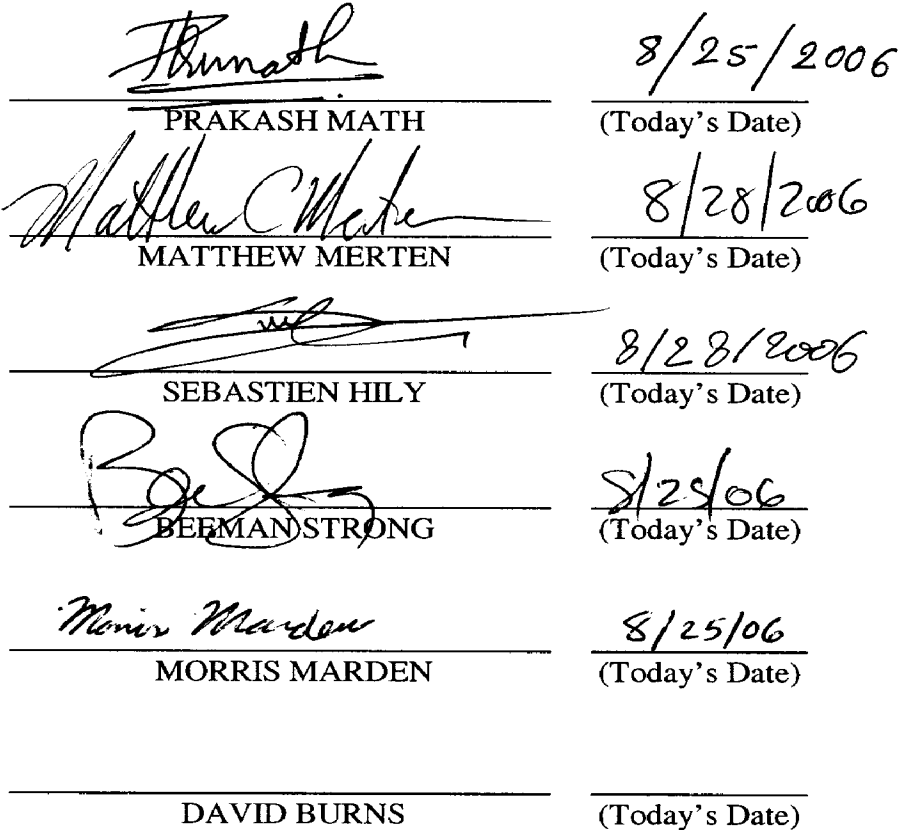 8/25/2006
PRAKASH MATH (Today's Date)
Matthew C Merten 8/28/2006
MATTHEW MERTEN (Today's Date)
8/28/2006
SEBASTIEN HILY (Today's Date)
8/25/06
BEEMAN STRONG (Today's Date)
Morris Marden 8/25/06
MORRIS MARDEN (Today's Date)
DAVID BURNS (Today's Date)